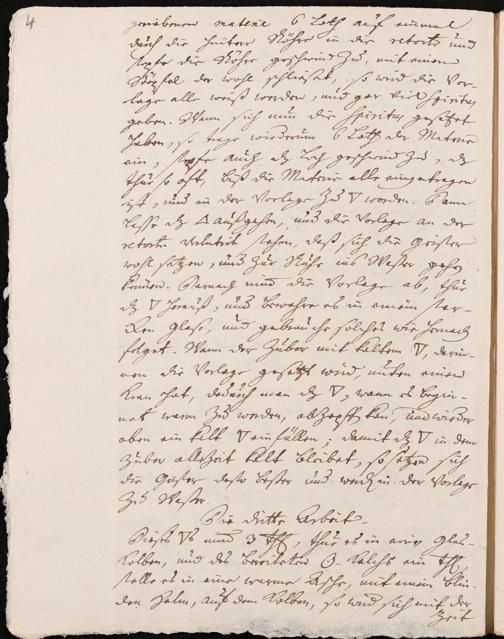 4
geriebenen materie 6 Loth auf einmal
durch die hintere Röhre in die retorte und
stopfe die Röhre geschwind zu, mit einem
Stöpsel der wohl schliesst, so wird die Vor-
lage alle weiß werden, und gar viel Spiritus
geben. Wann sich nun die Spiritus gesetzt
haben, so trage wiederum 6 Loth der Materie
ein, stopfe auch dz Loch geschwind zu, dz
thue so oft, biß die Materie alle eingetragen
ist, und in der Vorlage zu ▽ worden. Dann
lasse dz △ außgehen, und die Vorlage an der
retorte verlutirt stehen, daß sich die Geister
wohl setzen, und zur Ruhe ins Wasser gehen
können. Darnach nimm die Vorlage ab, thue
dz ▽ herauß, und bewahre es in einem star-
ken Glaß, und gebrauche solches wie hernach
folget. Wann der Zuber mit kaltem ▽, darin-
nen die Vorlage gesetzt wird, unten einen
Kran hat, dadurch man dz ▽, wann es begin-
net warm zu werden, abzapfen kan, und wieder
oben ein kalt ▽ einfüllen; damit dz ▽ in dem
Zuber allzeit kalt bleibet, so setzen sich
die Geister desto besser und werden in der Vorlage
zu Wasser.
Die dritte Arbeit.
Dieses ▽s nimm 3 ℔, thue es in ein Glaß-
kolben, und des bereiteten Kalchs ein ℔,
stelle es in eine warme Asche, mit einem blin-
den Helm, auf dem Kolben, so wird sich mit der
Zeit